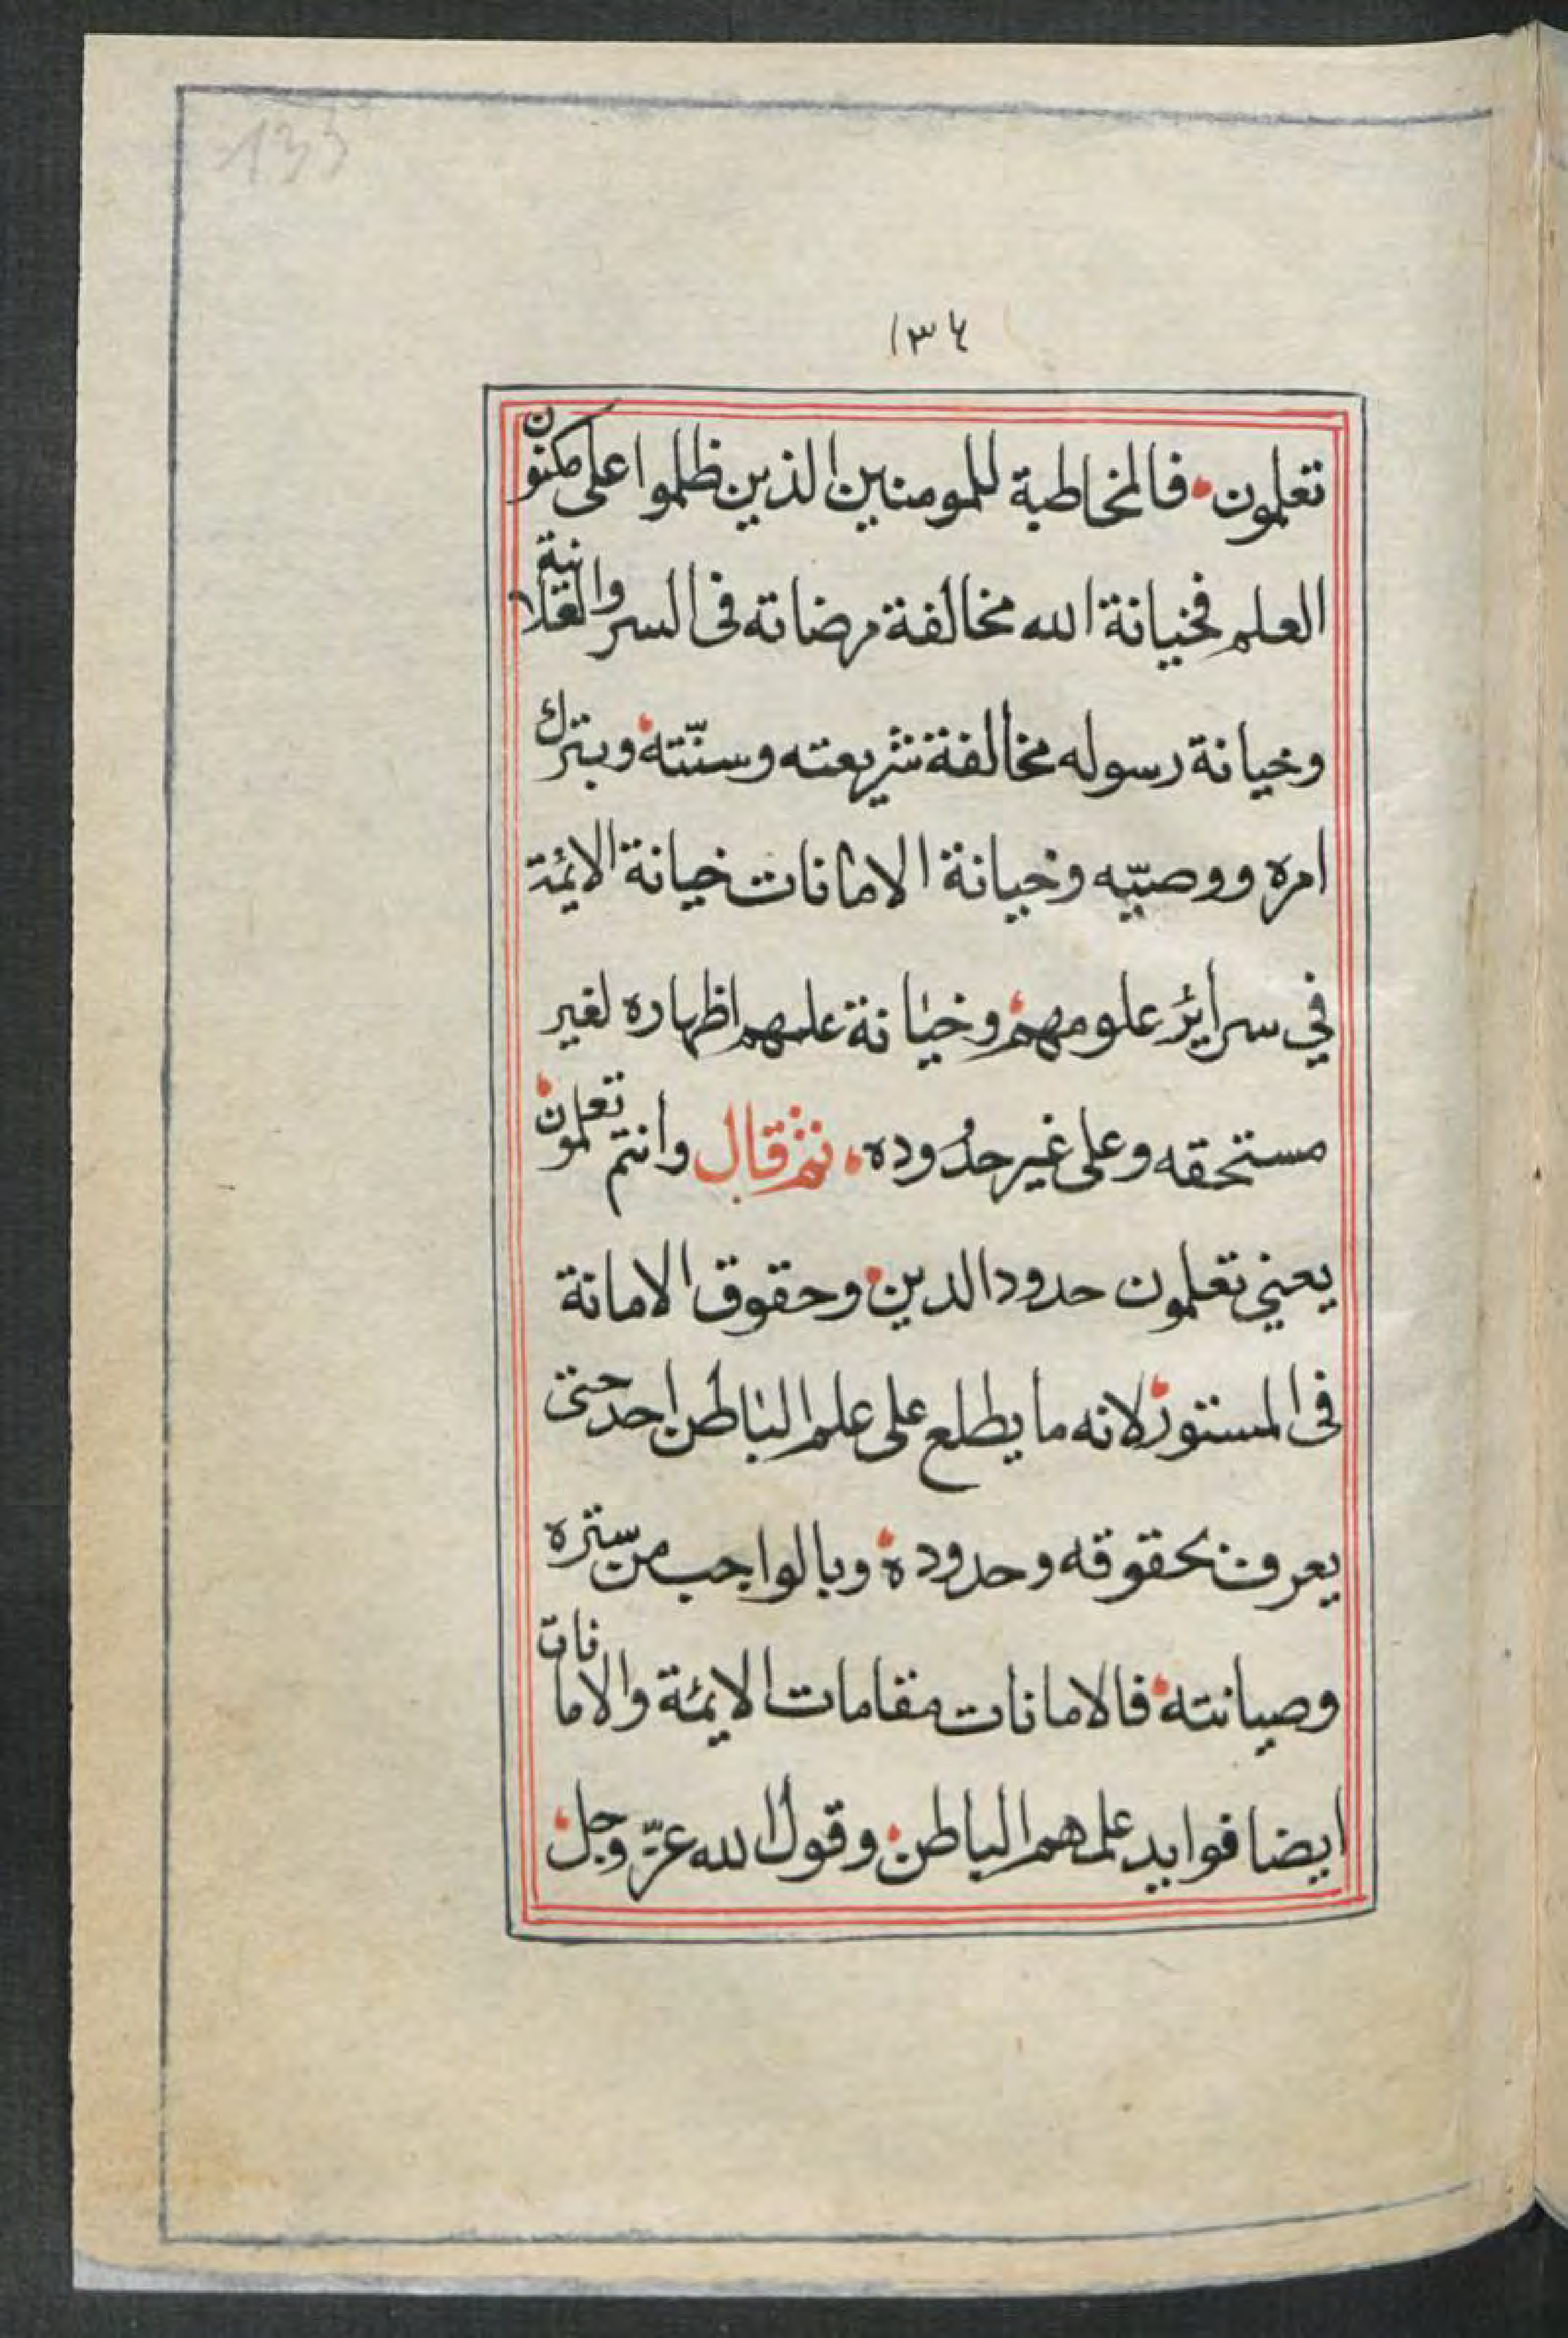 133
١٣٤
تعلمون فالمخاطبة للمومنين الذين ظلموا على مكنون
العلم فخيانة الله مخالفة مرضاته فى السر والعلانية
وخيانة رسوله مخالفة شريعته وسنّته وبترك
امره ووصيّيه وخيانة الامانات خيانة الايُمة
في سرايُر علومهم وخيانة علمهم اظهاره لغير
مستحقه وعلى غير حدُوده ثم قال وانتم تعلمون
يعني تعلمون حدود الدين وحقوق الامانة
فى المستور لانه ما يطلع على علم الباطن احد حتى
يعرف بحقوقه وحدوده وبالواجب من ستره
وصيانته فالامانات مقامات الايُمة والامانات
ايضا فوايد علمهم الباطن وقول الله عزّ وجل